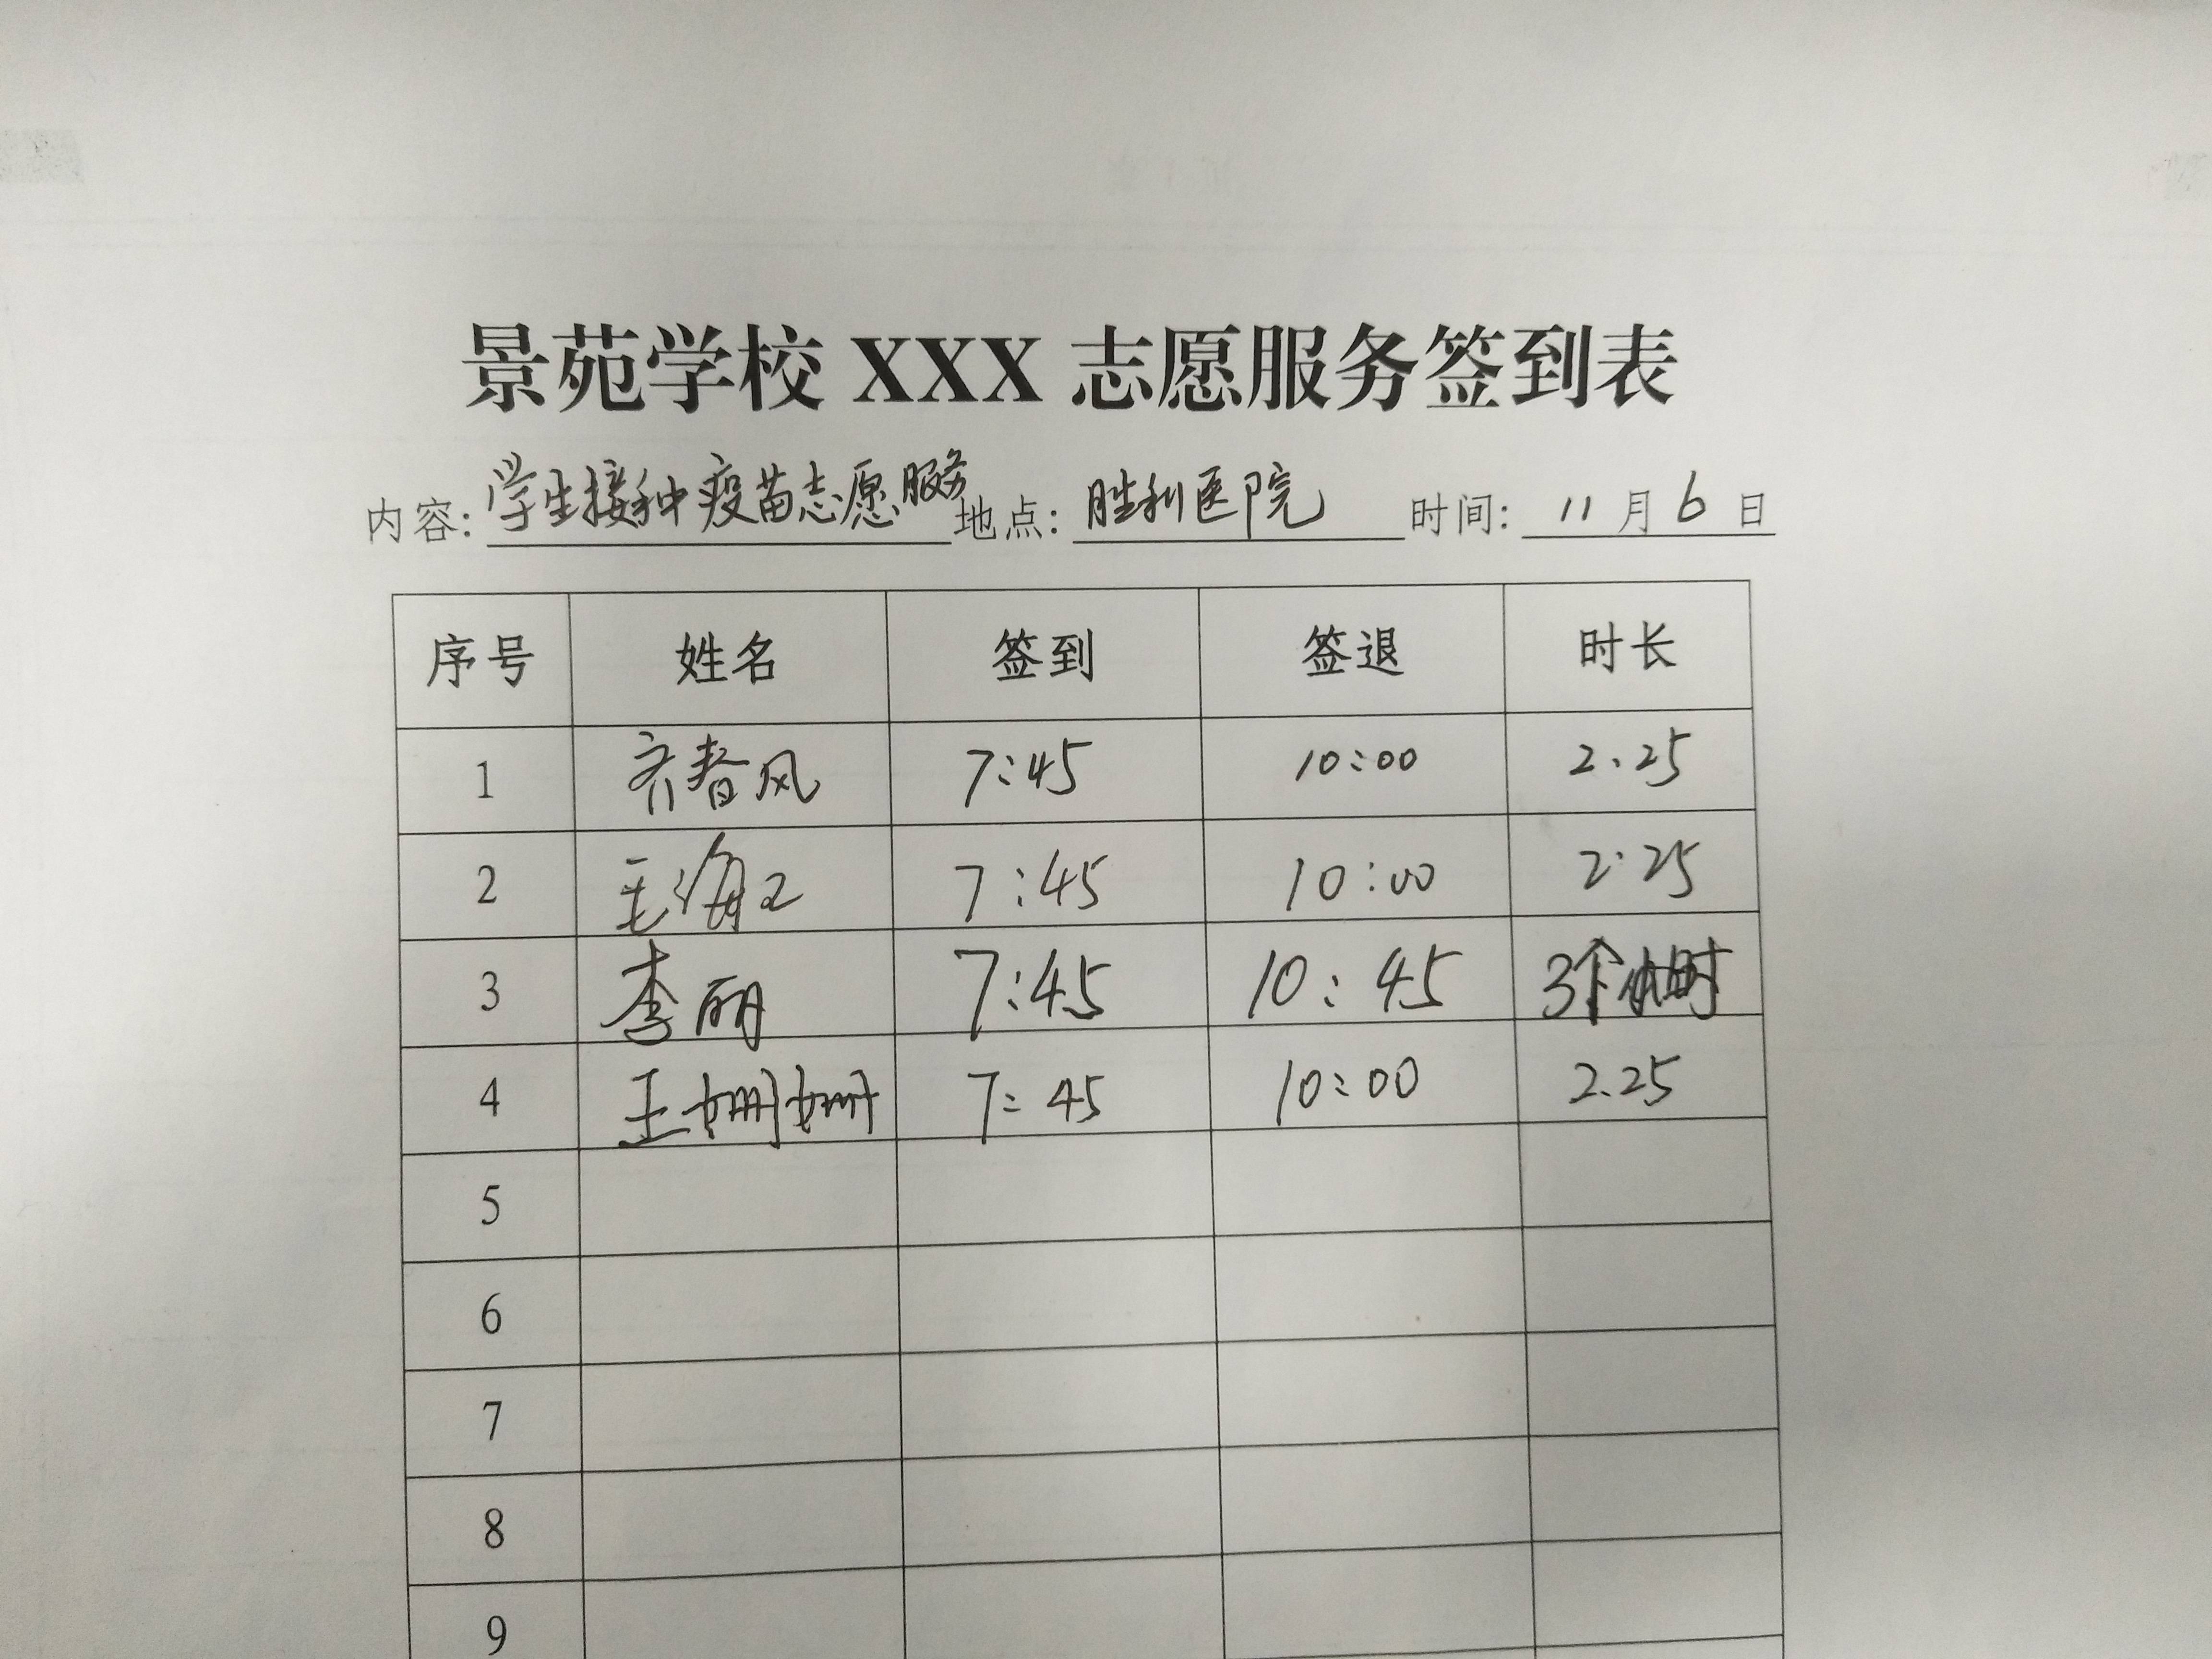 景苑学校 XXX 志愿服务签到表
内容: 学生接种疫苗志愿服务 地点: 胜利医院 时间: 11 月 6 日
序号 姓名 签到 签退 时长
1 齐春风 7:45 10:00 2.25
2 7:45 10:00 2.25
3 李丽 7:45 10:45 3个小时
4 王姗姗 7:45 10:00 2.25
5
6
7
8
9